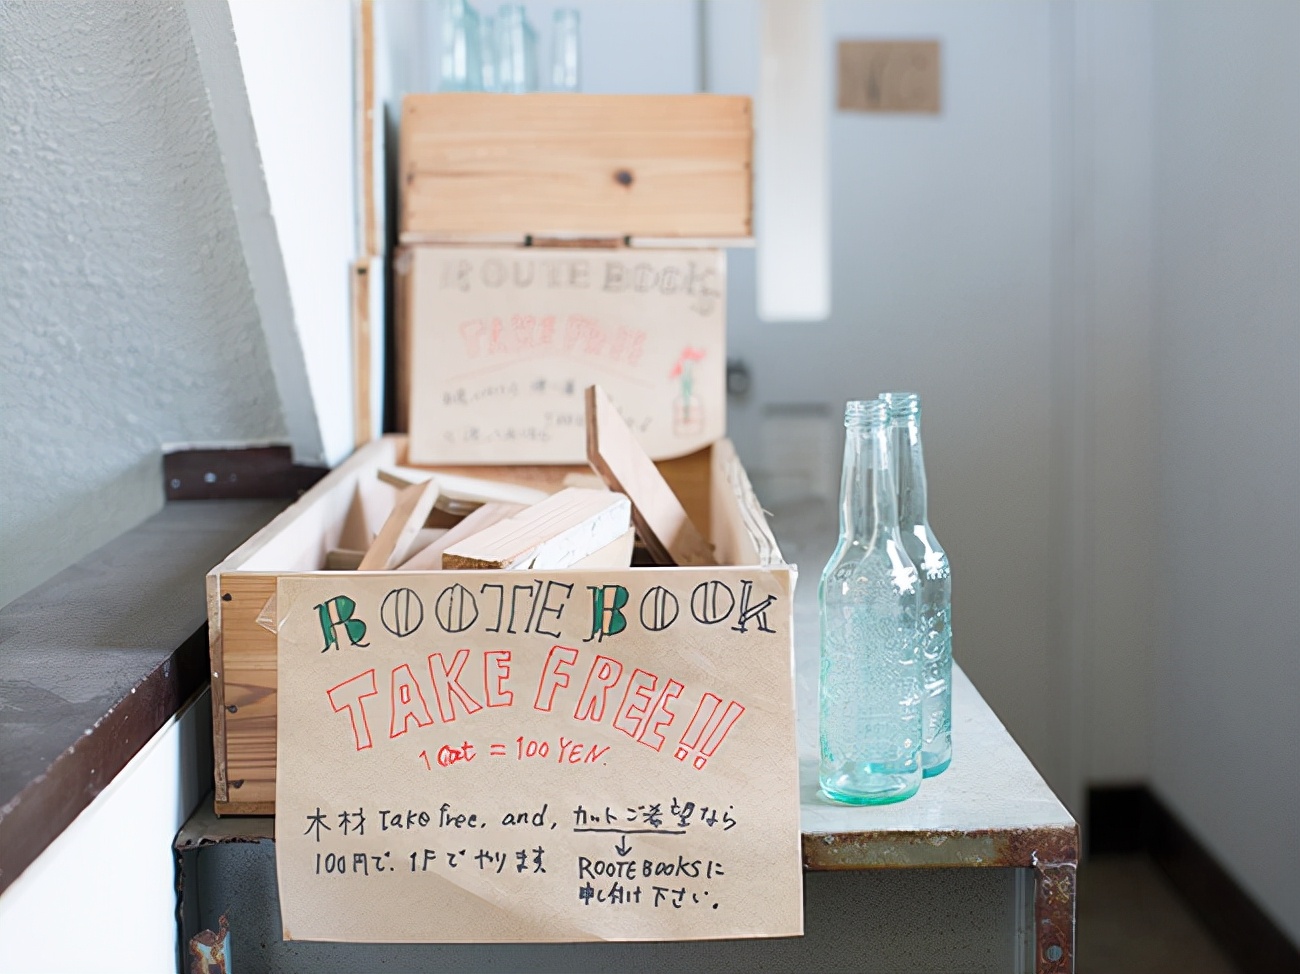 ROUTE BOOKS
TAKE FREE!!
ROOTE BOOK
TAKE FREE!!
1 Cut = 100 YEN.
木材 Take free, and, カットご希望なら
↓
100円で、1Fでやります ROOTE BOOKSに
申し付け下さい。